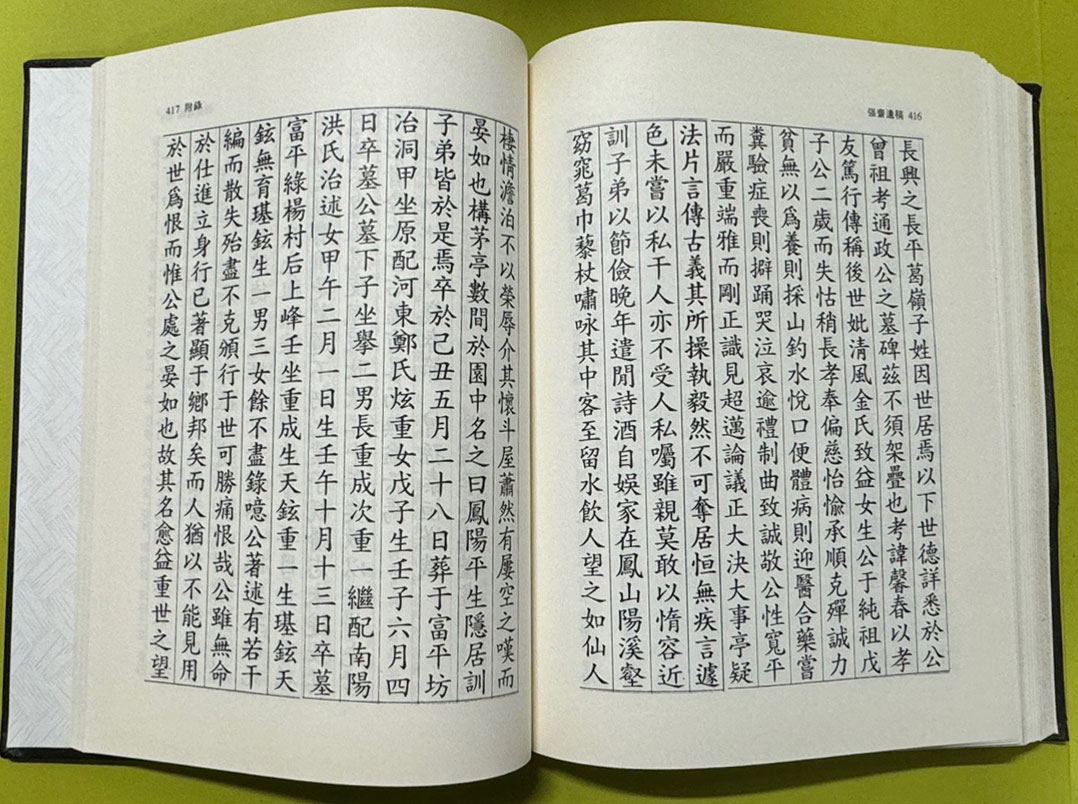 張齋遺稿 416
長興之長平葛嶺子姓因世居焉以下世德詳悉於公
曾祖考通政公之墓碑茲不須架疊也考諱馨春以孝
友篤行傳稱後世妣清風金氏致益女生公于純祖戊
子公二歲而失怙稍長孝奉偏慈怡愉承順克殫誠力
貧無以爲養則採山釣水悅口便體病則迎醫合藥嘗
糞驗症喪則擗踊哭泣哀逾禮制曲致誠敬公性寬平
而嚴重端雅而剛正識見超邁論議正大決大事亭疑
法片言傳古義其所操執毅然不可奪居恒無疾言遽
色未嘗以私干人亦不受人私囑雖親莫敢以惰容近
訓子弟以節儉晚年遣閒詩酒自娛家在鳳山陽溪壑
窈窕葛巾藜杖嘯咏其中客至留水飮人望之如仙人
417 附錄
棲情澹泊不以榮辱介其懷斗屋蕭然有屢空之嘆而
晏如也構茅亭數間於園中名之曰鳳陽平生隱居訓
子弟皆於是焉卒於己丑五月二十八日葬于富平坊
冶洞甲坐原配河東鄭氏炫重女戊子生壬子六月四
日卒墓公墓下子坐擧二男長重成次重一繼配南陽
洪氏治述女甲午二月一日生壬午十月十三日卒墓
富平綠楊村后上峰壬坐重成生天鉉重一生璂鉉天
鉉無育璂鉉生一男三女餘不盡錄噫公著述有若干
編而散失殆盡不克頒行于世可勝痛恨哉公雖無命
於仕進立身行已著顯于鄕邦矣而人猶以不能見用
於世爲恨而惟公處之晏如也故其名愈益重世之望